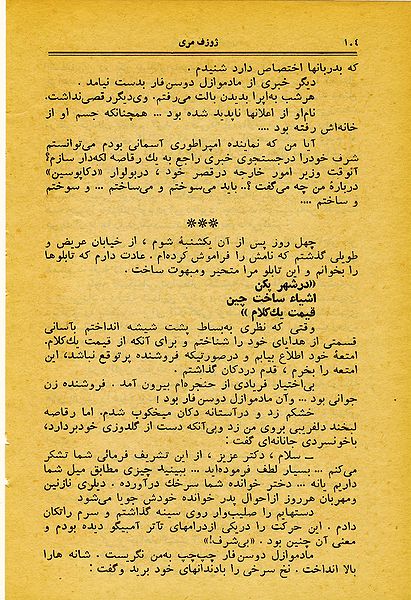 ۱۰۴
ژوزف مری
که بدربانها اختصاص دارد شنیدم .
دیگر خبری از مادموازل دوسن‌فار بدست نیامد .
هرشب به‌اپرا بدیدن بالت می‌رفتم. وی‌دیگر رقصی‌نداشت.
نام‌او از اعلانها ناپدید شده بود ... همچنانکه جسم او از
خانه‌اش رفته بود ....
آیا من که نماینده امپراطوری آسمانی بودم می‌توانستم
شرف خودرا درجستجوی خبری راجع به یك رقاصه لکه‌دار سازم؟
آنوقت وزیر امور خارجه درقصر خود ، دربولوار «دکاپوسین»
دربارهٔ من چه می‌گفت ؟.. باید می‌سوختم و می‌ساختم ... و سوختم
و ساختم ....
***
چهل روز پس از آن یکشنبهٔ شوم ، از خیابان عریض و
طویلی گذشتم که نامش را فراموش کرده‌ام . عادت دارم که تابلوها
را بخوانم و این تابلو مرا متحیر ومبهوت ساخت .
«درشهر پکن
اشیاء ساخت چین
قیمت یك‌کلام »
وقتی که نظری به‌بساط پشت شیشه انداختم بآسانی
قسمتی از هدایای خود را شناختم و برای آنکه از قیمت یك‌کلام.
امتعهٔ خود اطلاع بیابم و درصورتیکه فروشنده پرتوقع نباشد، این
امتعه را بخرم ، قدم دردکان گذاشتم .
بی‌اختیار فریادی از حنجره‌ام بیرون آمد . فروشنده زن
جوانی بود ... وآن مادموازل دوسن‌فار بود !
خشکم زد و درآستانه دکان میخکوب شدم. اما رقاصه
لبخند دلفریبی بروی من زد وبی‌آنکه دست از گلدوزی خودبردارد،
باخونسردی حانانه‌ای گفت :
ــ سلام ، دکتر عزیز ، از این تشریف فرمائی شما تشکر
می‌کنم ... بسیار لطف فرموده‌اید ... ببینید چیزی مطابق میل شما
داریم یانه ... دختر خوانده شما سرخك درآورده . دیلری نازنین
ومهربان هرروز ازاحوال پدر خوانده خودش جویا می‌شود
دستهایم را صلیب‌وار روی سینه گذاشتم و سرم راتکان
دادم . این حرکت را دریکی ازدرامهای تآتر آمبیگو دیده بودم و
معنی آن چنین بود . «بی‌شرف!»
مادموازل دوسن‌فار چپ‌چپ به‌من نگریست . شانه هارا
بالا انداخت . نخ سرخی را بادندانهای خود برید وگفت :